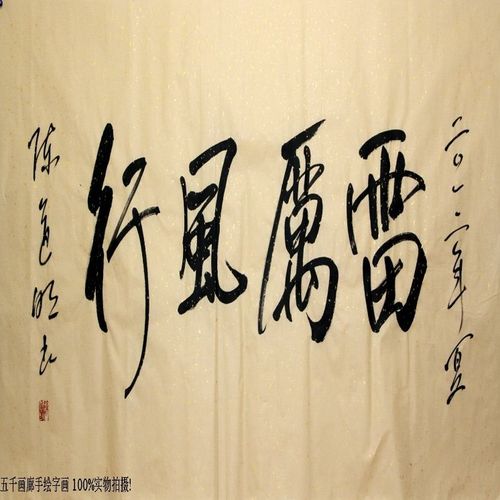 二〇一二年夏
雷厲風行
陈道明书
五千画廊手绘字画 100%实物拍摄!